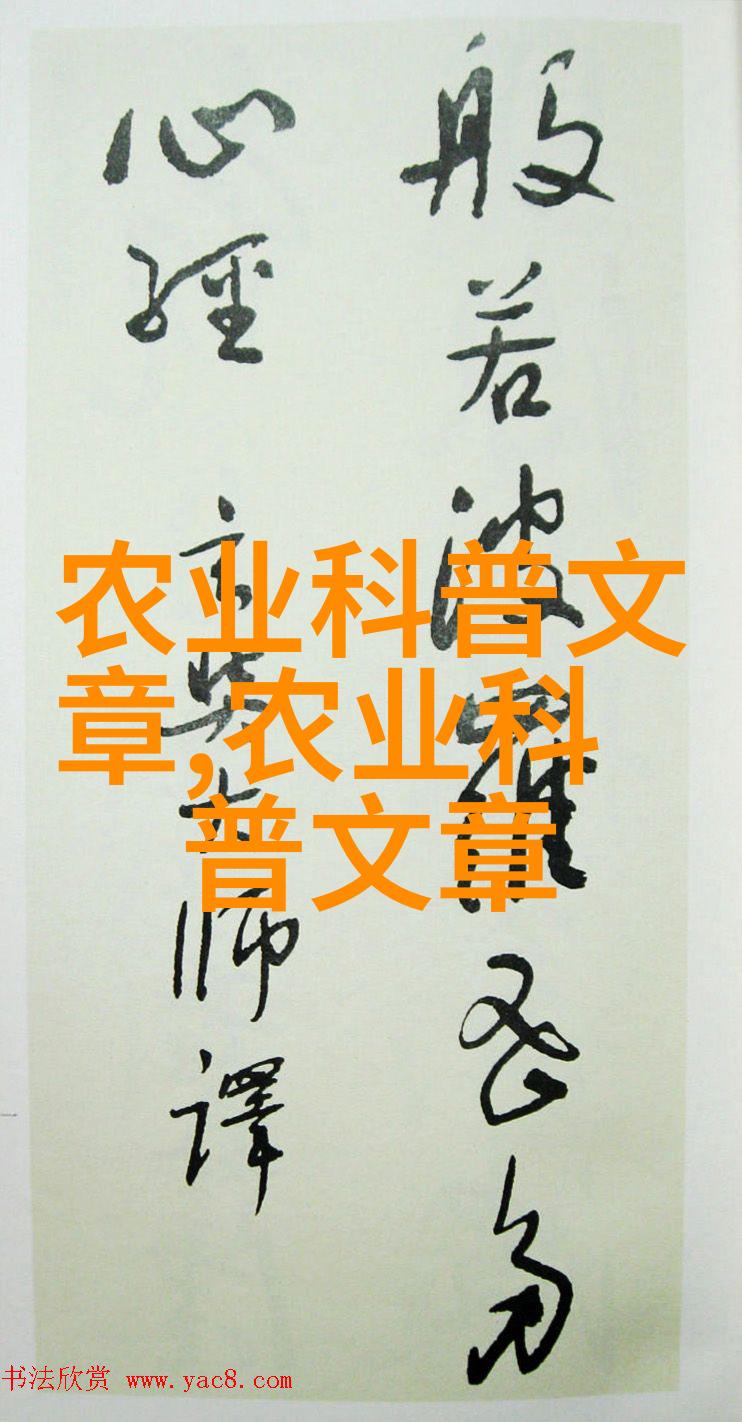 般若波羅蜜多
心經 玄奘大师譯
农业科普文
章,农业科
普文章
书法欣赏 www.yac8.com